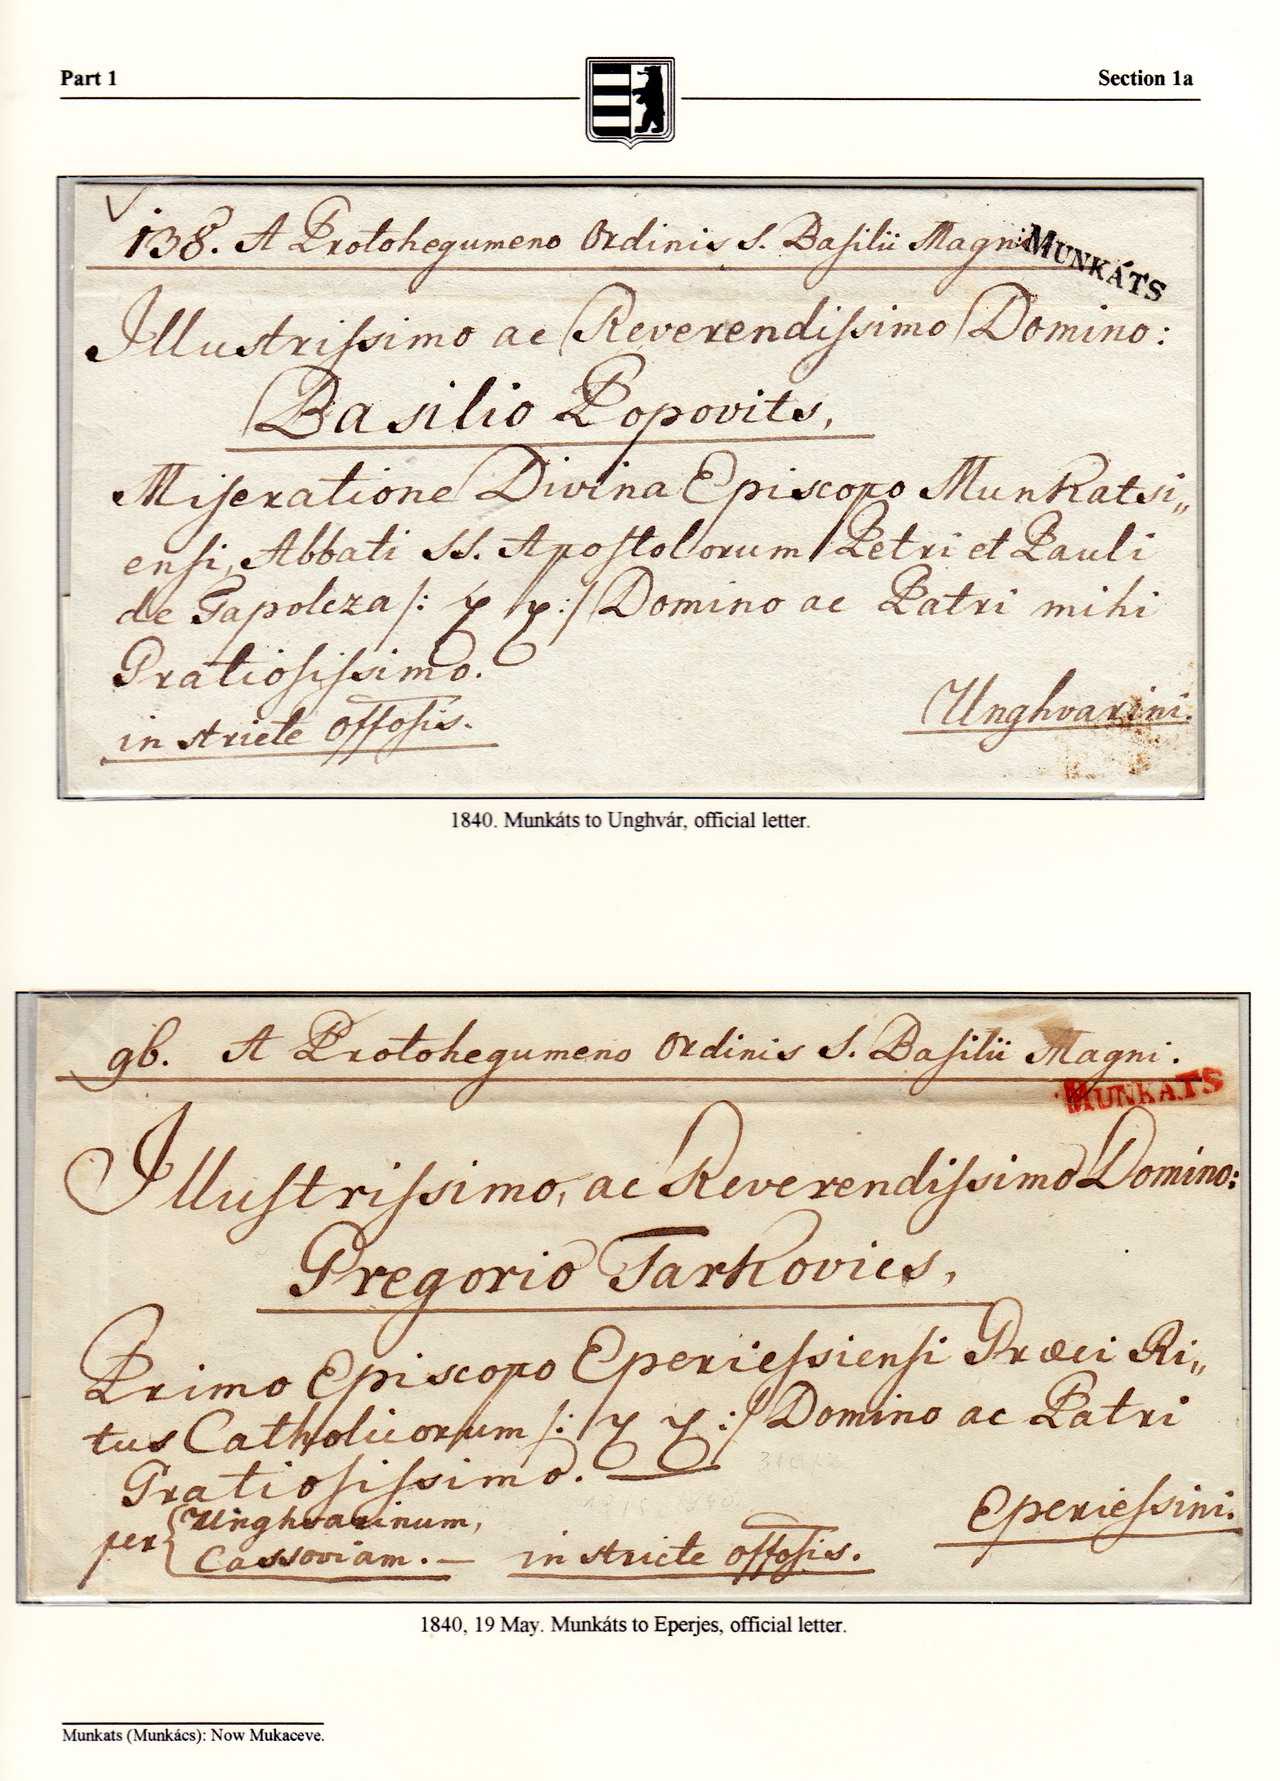 Part 1
Section 1a
138. A Protohegumeno Ordinis S. Basilii Magni
MUNKÁTS
Illustrissimo ac Reverendissimo Domino:
Basilio Popovits,
Miseratione Divina Episcopo Munkatsi„
ensi, Abbati SS. Apostolorum Petri et Pauli
de Tapolcza /: :/ Domino ac Patri mihi
Gratiosissimo.
in stricte offosis.
Unghvarini.
1840. Munkáts to Unghvár, official letter.
96. A Protohegumeno Ordinis S. Basilii Magni.
MUNKATS
Illustrissimo, ac Reverendissimo Domino:
Gregorio Tarkovics,
Primo Episcopo Eperiessiensi Græci Ri„
tus Catholicorum /: :/ Domino ac Patri
Gratiosissimo.
per Unghvarinum,
Cassoviam. — in stricte offosis.
Eperiessini.
1840, 19 May. Munkáts to Eperjes, official letter.
Munkats (Munkács): Now Mukaceve.